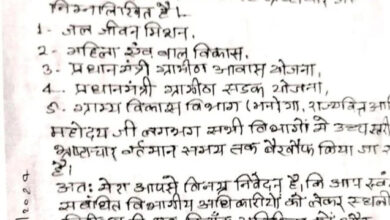 निम्नलिखित है।
1- जल जीवन मिशन,
2- महिला एंव बाल विकास,
3- प्रधानमंत्री ग्रामीण आवास योजना,
4- प्रधानमंत्री ग्रामीण सडक योजना,
5- ग्राम्य विकास विभाग (मनरेगा, राज्यवित्त आदि
महोदय जी लगभग सभी विभागों में उच्च स्तरी
भ्रष्टाचार वर्तमान समय तक बैखौफ किया जा र
है।
अतः मेरा आपसे विनम्र निवेदन है, कि आप स्वं
सबंधित विभागीय अधिकारीयों को लेकर